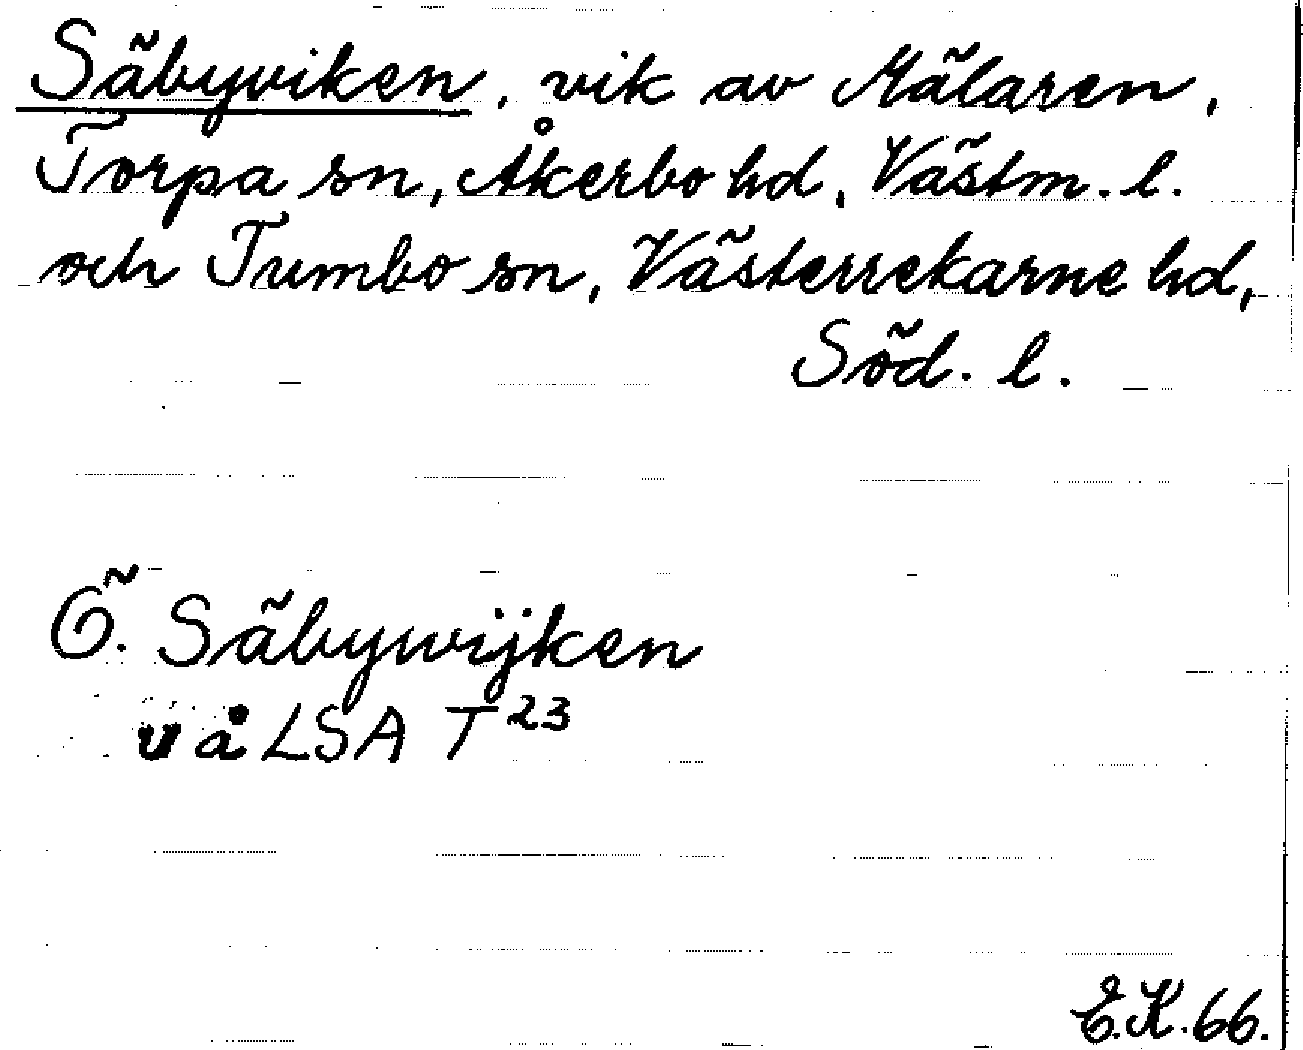 Säbyviken, vik av Mälaren,
Torpa sn, Åkerbo hd, Västm. l.
och Tumbo sn, Västerrekarne hd,
Söd. l.
Ö. Säbywijken
u å LSA T 23
E.K. 66.